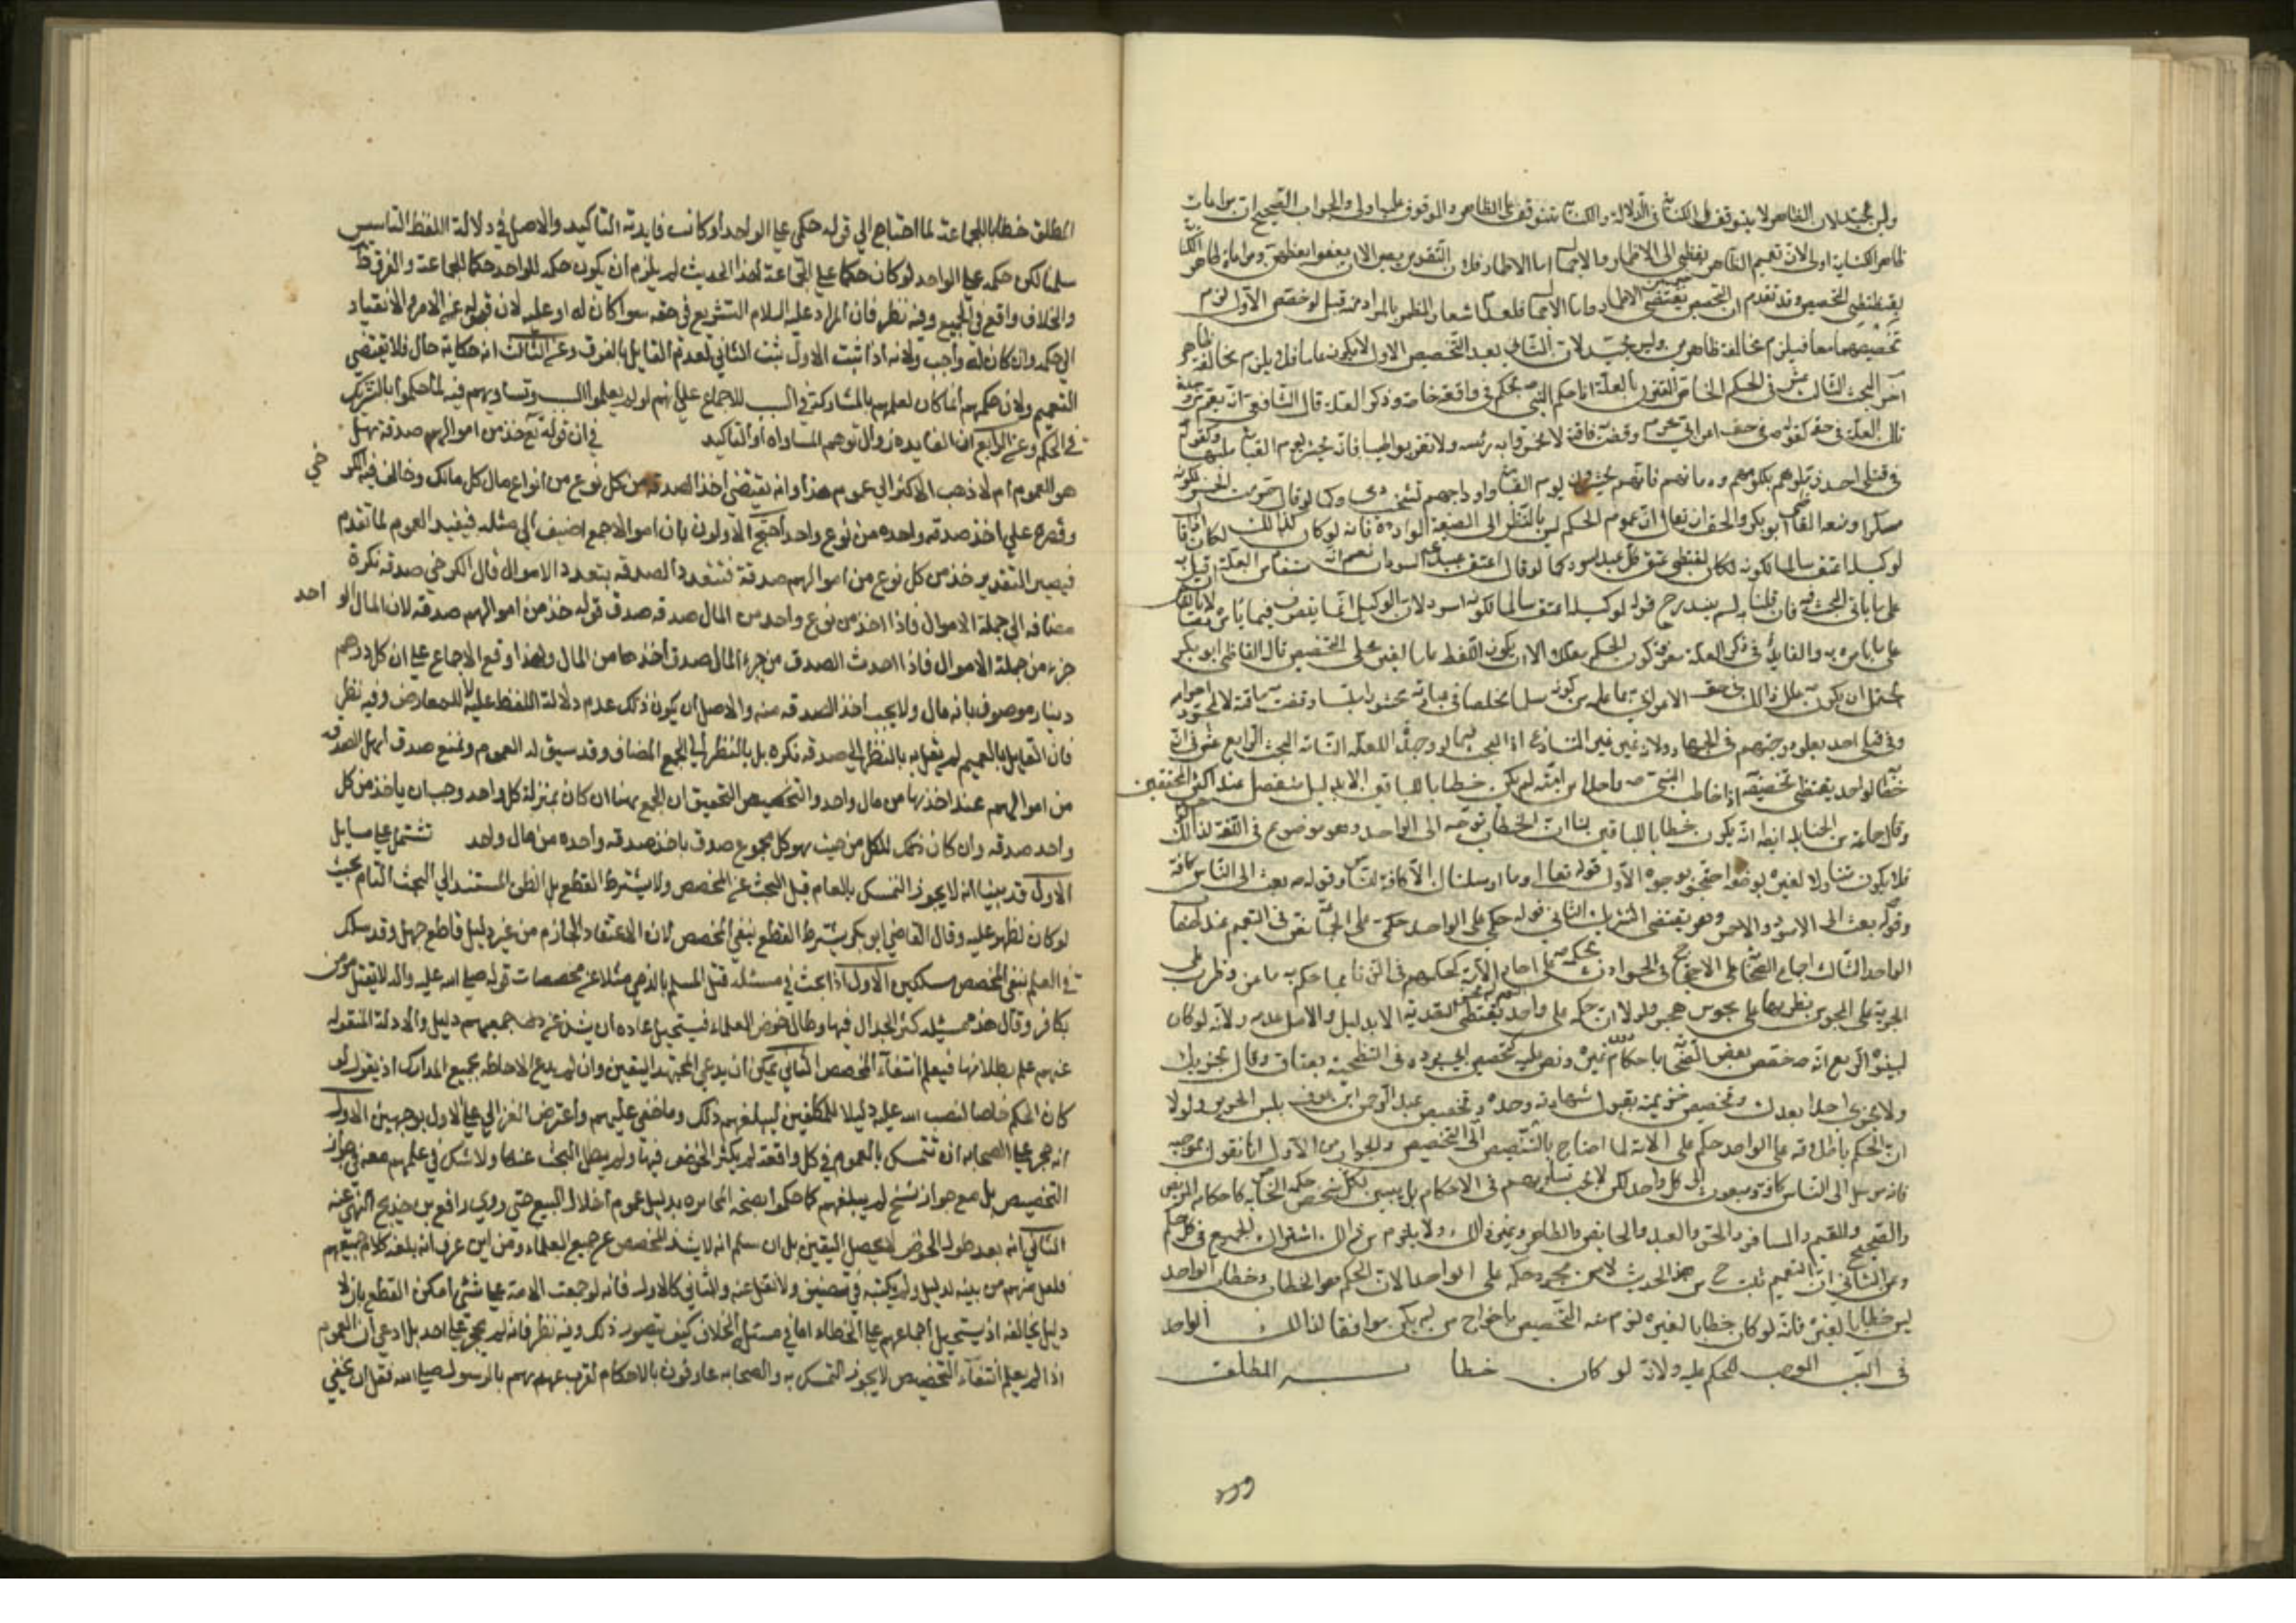 وليس بجيد لان الظاهر لا يتوقف على الكناية في الدلالة والكناية تتوقف على الظاهر والموقوف عليه اولى والجواب الصحيح ان مراعات
ظاهر الكناية اولى لان تعميم الظاهر يفضي الى الاضمار
يقتضي التخصيص وقد تقدم ان التخصيص
تخصيصهما معا فيلزم مخالفة ظاهرين وليس بجيد لان الثاني بعد التخصيص الاول لا يكون عاما فلا يلزم مخالفة ظاهر
اخر البحث الثالث عشر في الحكم الخاص المقرون بالعلة اذا حكم النبي ص بحكم في واقعة خاصة وذكر العلة قال الشافعي انه يعم
تلك العلة في حقه كقوله ص في حق اعرابي محرم وقصت ناقته لا تخمروا به رأسه ولا تقربوه طيبا فانه يحشر يوم القيامة ملبيا وكقوله
في قتلى احد زملوهم بكلومهم ودمائهم فانهم يحشرون يوم القيامة واوداجهم تشخب دما وكما لو قال حرمت الخمر لكونه
مسكرا ومنعه القاضي ابو بكر والحق ان يقال ان عموم الحكم ليس بالنظر الى الصيغة الواردة فانه لو كان كذلك لكان
لوكيله اعتق سالما لكونه اسود لكان يقتضي عتق كل عبد اسود كما لو قال اعتق عبيدي السودان نعم انه مستفاد من العلة
على ما ياتي البحث فيه فان قلنا به لم يندرج قوله لوكيله اعتق سالما لكونه اسود لان الوكيل انما يتصرف فيما
على ما يامره به والفايدة في ذكر العلة معرفة كون الحكم معللا الا ان يكون اللفظ عاما لغير محل التخصيص قال القاضي ابو بكر
يحتمل ان يكون ص علل ذلك في حق الاعرابي بما علمه من كونه مسلما مخلصا في عبادته يحشر ملبيا وقصت به ناقته لا بمجرد احرامه
وفي قتلى احد بعلو درجتهم في الجهاد
خطاب الواحد يقتضي تخصيصه اذا خاطب النبي ص واحدا من امته لم يكن خطابا للباقين الا بدليل منفصل عند اكثر المحققين
وقال جماعة من الحنابلة ايضا انه يكون خطابا للباقين لنا ان الخطاب توجه الى الواحد وهو موضوع في اللغة لذلك
فلا يكون متناولا لغيره بوضعه احتجوا بوجوه الاول قوله تعالى وما ارسلناك الا كافة للناس وقوله ص بعثت الى الناس كافة
وقوله بعثت الى الاسود والاحمر وهو يقتضي التشريك الثاني قوله حكمي على الواحد حكمي على الجماعة
الواحد الثالث اجماع الصحابة على الاحتجاج في الحوادث بحكمه ص على احاد الامة كحكمهم في الزنا بما حكم به ماعز وضرب
الجزية على المجوس بضربها على مجوس هجر ولولا ان حكمه على واحد يقتضي التعدية الا بدليل والاصل عدمه ولانه لو كان
لبينوه الرابع انه ص خصص بعض الصحابة باحكام دون غيره ونص عليه كتخصيص ابي بردة في التضحية بعناق وقال تجزيك
ولا تجزي احدا بعدك وتخصيص خزيمة بقبول شهادته وحده وتخصيص عبد الرحمن ابن عوف بلبس الحرير ولولا
ان الحكم باطلاقه على الواحد حكم على الامة لما احتاج بالتنصيص الى التخصيص والجواب عن الاول انا نقول بموجبه
فانه مرسل الى الناس كافة ومبعوث الى كل واحد لكن لا يجب تساويهم في الاحكام بل يبين لكل شخص حكمه الخاص به كاحكام المريض
والصحيح والمقيم والمسافر والحر والعبد والحايض والطاهر وغير ذلك ولا يلزم من ذلك اشتراك الجميع في كل حكم
وعن الثاني ان التعميم ثبت ح من هذا الحديث لا من مجرد حكمه على الواحد لان الحكم هو الخطاب وخطاب الواحد
ليس خطابا لغيره فانه لو كان خطابا لغيره لزم منه التخصيص باخراج من لم يكن موافقا لذلك الواحد
في السبب الموجب للحكم عليه ولانه لو كان خطابه المطلق
٢٦٦
المطلق خطابا للجماعة لما احتاج الي قوله حكمي علي الواحد او كانت فايدته التاكيد والاصل في دلالة اللفظ التاسيس
سلمنا لكن حكمه علي الواحد لو كان حكما علي الجماعة لهذا الحديث لم يلزم ان يكون حكمه للواحد حكما للجماعة والفرق ظ
والخلاف واقع في الجميع وفيه نظر فان المراد عليه السلام التشريع في حقه سوا كان له او عليه لان قوله عن الامر والانقياد
الي حكمه وان كان له واجب ولانه اذا ثبت الاول ثبت الثاني لعدم القايل بالفرق وعن الثالث انه حكاية حال فلا يقتضي
التعميم ولان حكمهم انما كان لعلمهم بالمشاركة في السبب للاجماع علي انهم لو لم يعلموا السبب وتساويهم فيه لما حكموا بالتشريك
في الحكم وعن الرابع ان الفايده زوال توهم المساواه او التاكيد في ان قوله تع خذ من اموالهم صدقة هل
هو للعموم ام لا ذهب الاكثر الي عموم هذا وانه يقتضي اخذ الصدقة من كل نوع من انواع مال كل مالك وخالف فيه الكرخي
وقصره علي اخذ صدقه واحده من نوع واحد احتج الاولون بان اموالا جمع اضيف الي مثله فيفيد العموم لما تقدم
فيصير التقدير خذ من كل نوع من اموالهم صدقة فتتعدد الصدقه بتعدد الاموال قال الكرخي صدقه نكرة
مضافه الي جملة الاموال فاذا اخذ من نوع واحد من المال صدقه صدق قوله خذ من اموالهم صدقه لان المال الواحد
جزء من جملة الاموال فاذا اخذت الصدقة من جزء المال صدق اخذها من المال ولهذا وقع الاجماع علي ان كل درهم
دينار موصوف بانه مال ولا يجب اخذ الصدقه منه والاصل ان يكون ذلك عدم دلالة اللفظ عليه لا للمعارض وفيه نظر
فان القايل بالتعميم لم يقل به بالنظر الي صدقه نكره بل بالنظر الي الجمع المضاف وقد سبق له العموم ونمنع صدق اخذ الصدقه
من اموالهم عند اخذها من مال واحد والتخصيص التحقيق ان الجمع هنا ان كان بمنزلة كل واحد وجب ان ياخذ من كل
واحد صدقه وان كان ذلك للكل من حيث هو كل مجموع صدق باخذ صدقه واحده من مال واحد تشتمل علي مسايل
الاول قد بينا انه لا يجوز التمسك بالعام قبل البحث عن المخصص ولا يشترط القطع بل الظن المستند الي البحث التام بحيث
لو كان لظهر عليه وقال القاضي ابو بكر يشترط القطع بنفي المخصص لان الاعتقاد الجازم من غير دليل قاطع جهل وقد سلك
في العلم بنفي المخصص مسلكين الاول اذا بحث في مسئلة قتل المسلم بالذمي مثلا عن مخصصات قوله صلي الله عليه واله لا يقتل مومن
بكافر وقال هذه مسئله كثر الجدال فيها وطال خوض العلماء فيستحيل عاده ان يشذ عن جميعهم دليل والادلة المنقوله
عنهم علم بطلانها فيعلم انتفاء المخصص الثاني يمكن ان يدعي المجتهد اليقين وان لم يدع الاحاطه بجميع المدارك اذ يقول لو
كان الحكم خاصا لنصب الله عليه دليلا للمكلفين ليبلغهم ذلك وما خفي عليهم واعترض الغزالي علي الاول بوجهين الاول
انه حجر علي الصحابه ان تتمسك بالعموم في كل واقعة لم يكثر الخوض فيها ولم يطل البحث عنها ولا شك في علمهم معه في جواز
التخصيص بل مع جواز نسخ لم يبلغهم كما حكموا بصحه المخابره بدليل عموم احلال البيع حتي روي رافع بن خديج النهي عنه
الثاني انه بعد طول الخوض لا يحصل اليقين بل ان سلم انه لا يشذ المخصص عن جميع العلماء ومن اين عرف انه بلغه كلام جميعهم
فلعل منهم من بينه لدليل ولم يكتبه في تصنيفه ولا نقل عنه والثاني كالاول فانه لو جمعت الامة علي شئ امكن القطع بان لا
دليل يخالفه اذ يستحيل اجماعهم علي الخطاء اما في مسئلة الخلاف كيف يتصور ذلك وفيه نظر فانه لم يحجر علي احد بل ادعي ان العموم
اذا لم يعلم انتفاء التخصيص لا يجوز التمسك به والصحابه عارفون بالاحكام لقرب عهدهم بالرسول صلي الله فقل ان يخفي